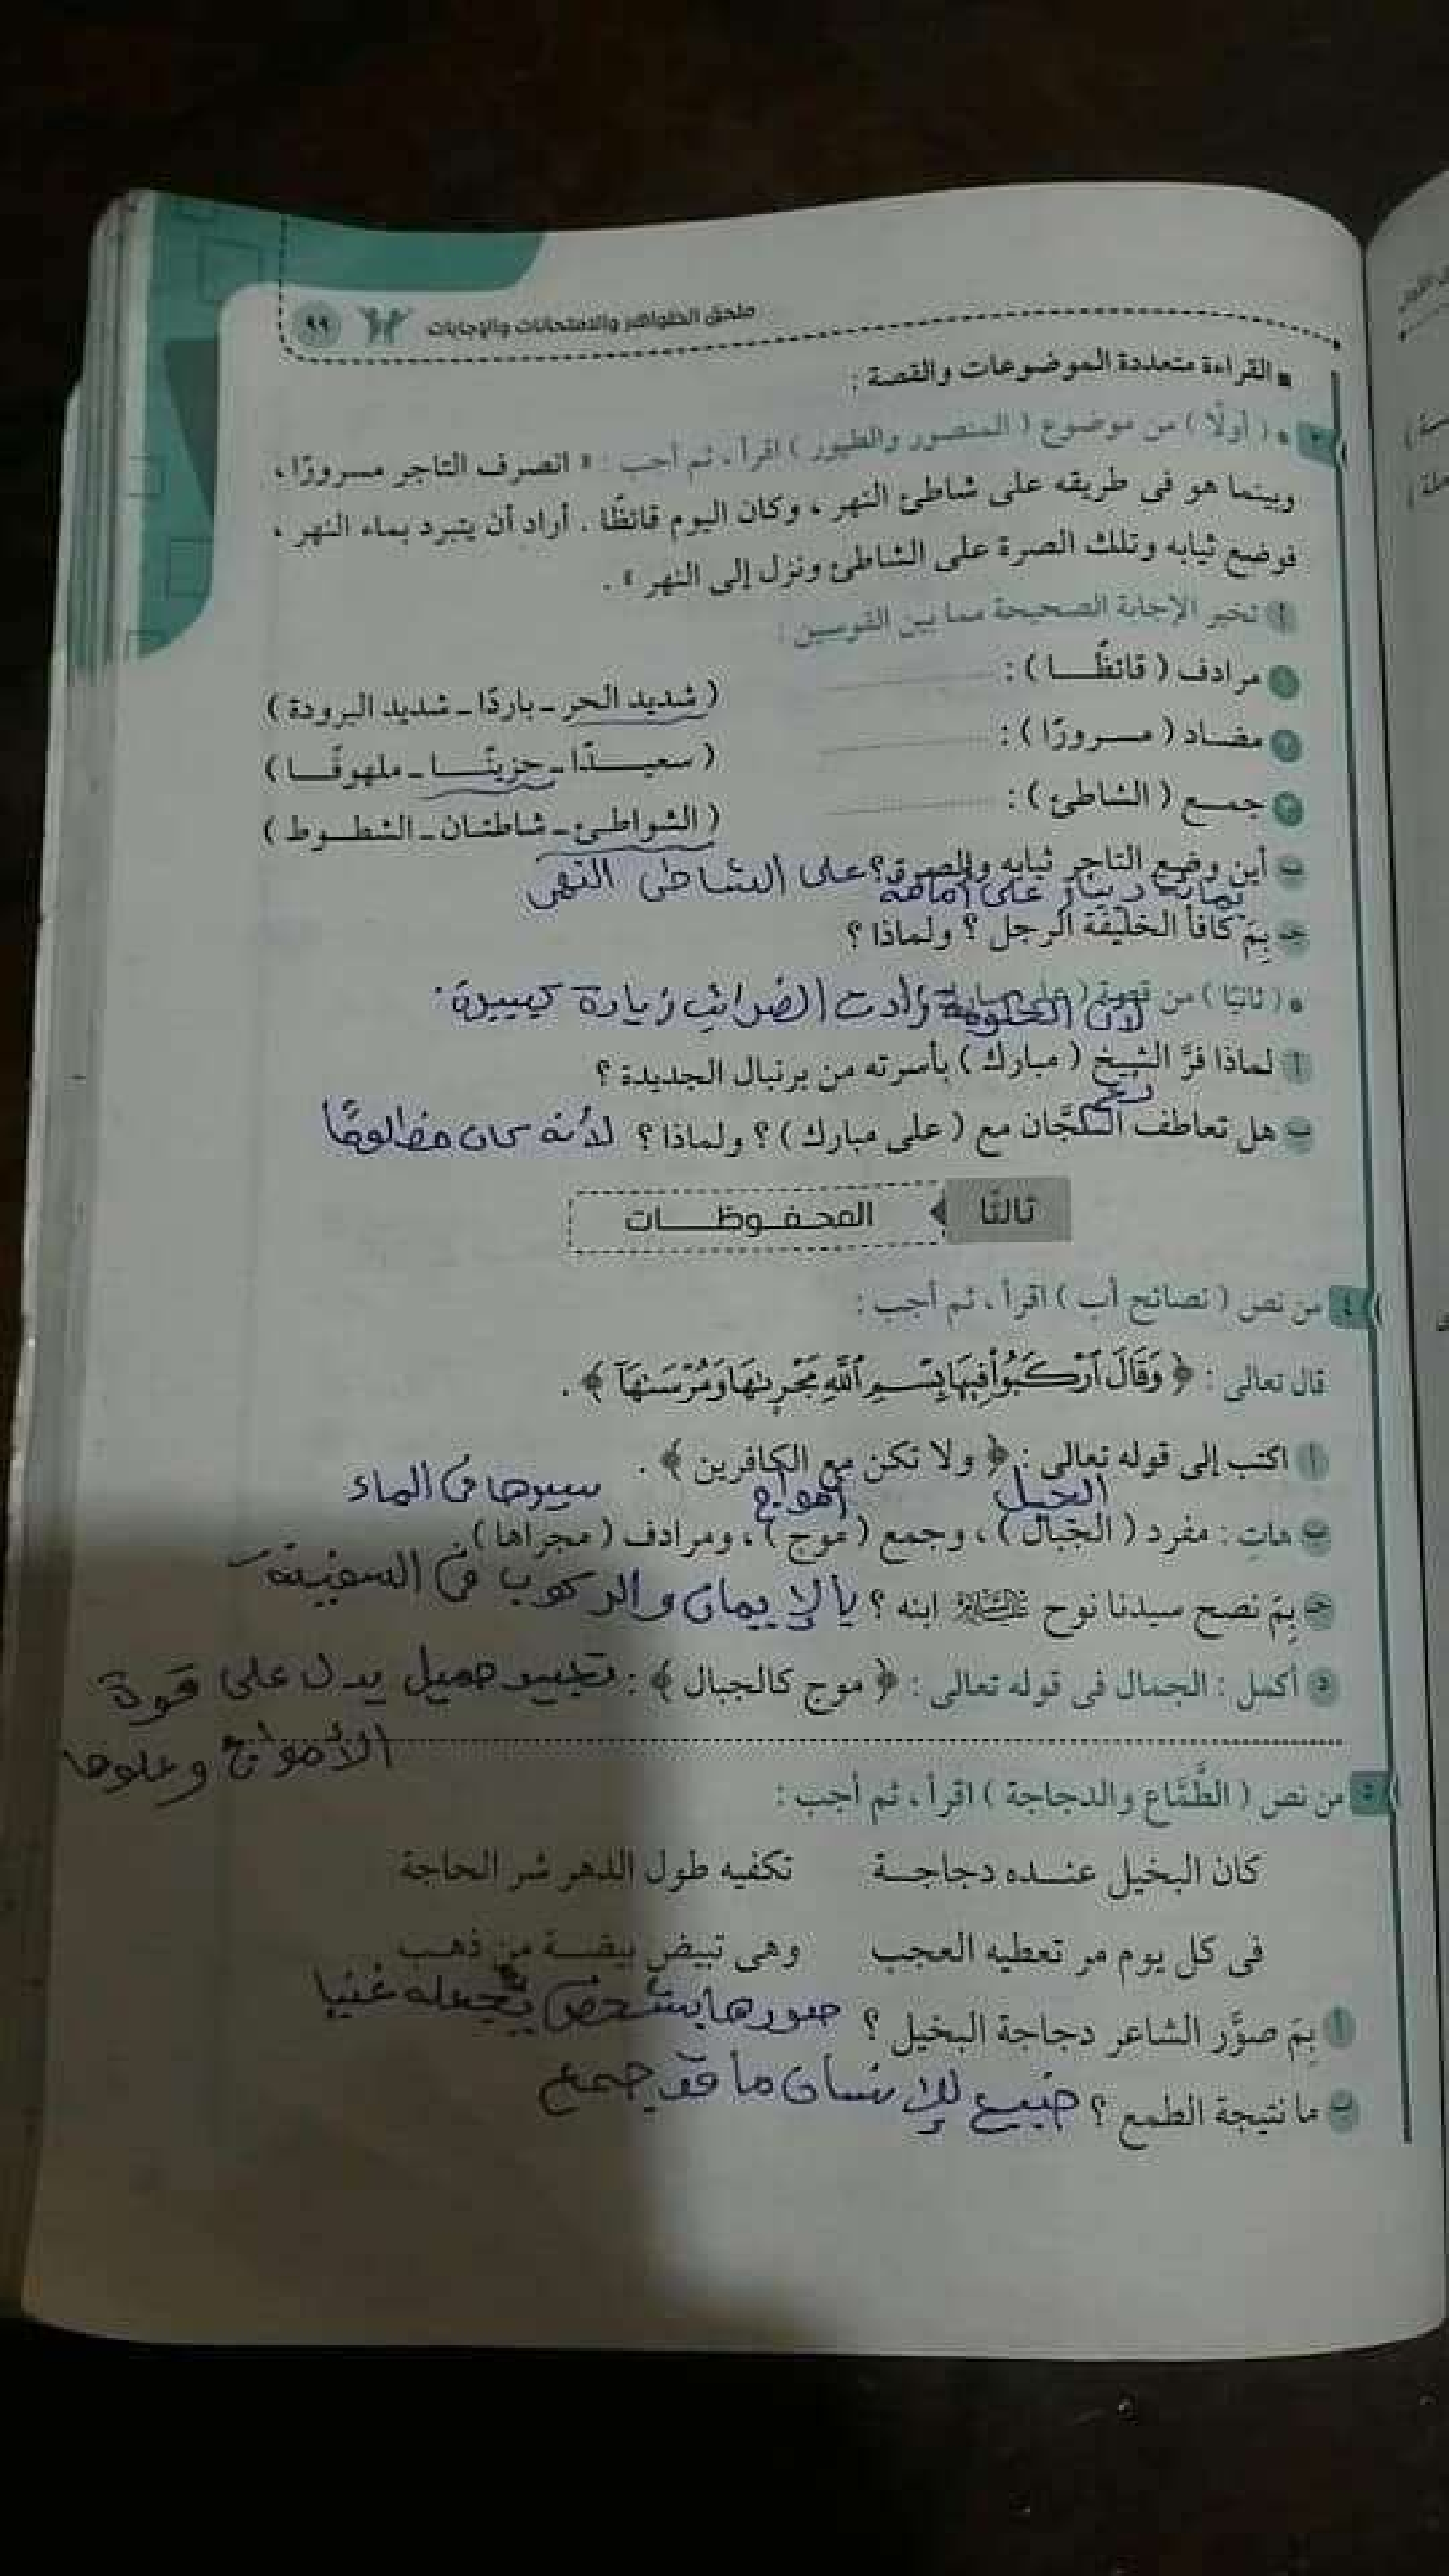 ملحق الظواهر والامتحانات والإجابات ٩٩
■ القراءة متعددة الموضوعات والقصة :
٣ • ( أولًا ) من موضوع ( المنصور والطيور ) اقرأ ، ثم أجب : « انصرف التاجر مسرورًا ،
وبينما هو فى طريقه على شاطئ النهر ، وكان اليوم قائظًا . أراد أن يتبرد بماء النهر ،
فوضع ثيابه وتلك الصرة على الشاطئ ونزل إلى النهر » .
أ تخير الإجابة الصحيحة مما بين القوسين :
١ مرادف ( قائظًــا ) : ............ ( شديد الحر ـ باردًا ـ شديد البرودة )
٢ مضاد ( مسرورًا ) : ............ ( سعيــدًا ـ حزينًــا ـ ملهوفًــا )
٣ جمع ( الشاطئ ) : ............ ( الشواطئ ـ شاطئان ـ الشطوط )
ب أين وضع التاجر ثيابه والصرة ؟ على الشاطى النهر
بمائة دينار على أمانته
جـ بِمَ كافأ الخليفة الرجل ؟ ولماذا ؟
• ( ثانيًا ) من قصة ( على مبارك
لأن الحكومة زادت الضرائب زيادة كبيرة .
أ لماذا فرَّ الشيخ ( مبارك ) بأسرته من برنبال الجديدة ؟
نعم
ب هل تعاطف السَّجَّان مع ( على مبارك ) ؟ ولماذا ؟ لأنه كان مظلومًا
ثالثًا المحفوظات
٤ من نص ( نصائح أب ) اقرأ ، ثم أجب :
قال تعالى : ﴿ وَقَالَ ٱرْكَبُوا۟ فِيهَا بِسْمِ ٱللَّهِ مَجْر۪ىٰهَا وَمُرْسَىٰهَآ ﴾ .
أ اكتب إلى قوله تعالى : ﴿ ولا تكن مع الكافرين ﴾ .
الجبل أمواج سيرها فى الماء
ب هاتِ : مفرد ( الجبال ) ، وجمع ( موج ) ، ومرادف ( مجراها )
جـ بِمَ نصح سيدنا نوح عليه السلام ابنه ؟ بالإيمان والركوب فى السفينة
د أكمل : الجمال فى قوله تعالى : ﴿ موج كالجبال ﴾ : تعبير جميل يدل على قوة
الأمواج وعلوها
٥ من نص ( الطَّمَّاع والدجاجة ) اقرأ ، ثم أجب :
كان البخيل عنــده دجاجــة تكفيه طول الدهر شر الحاجة
فى كل يوم مر تعطيه العجب وهى تبيض بيضــة من ذهب
أ بِمَ صوَّر الشاعر دجاجة البخيل ؟ صورها بشخص يجعله غنيا
ب ما نتيجة الطمع ؟ ضيع للإنسان ما قد جمع